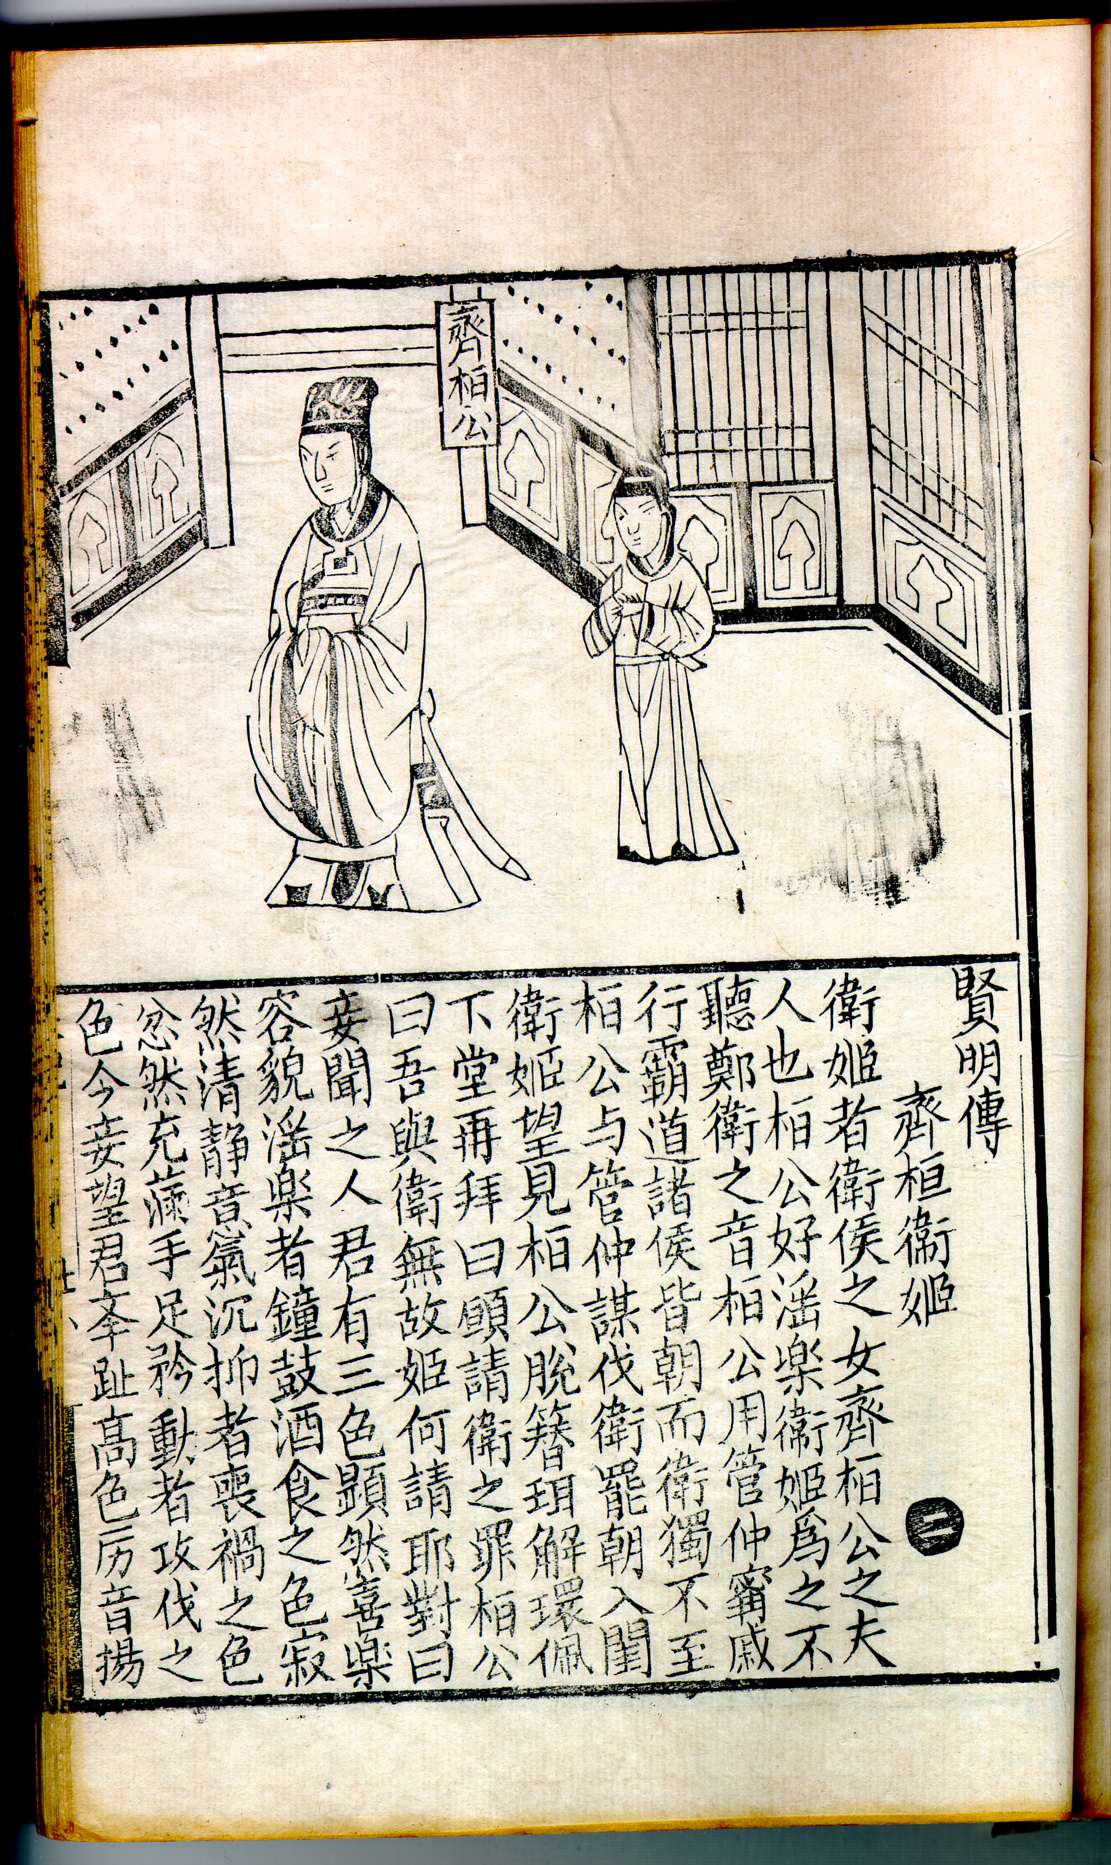 齊栢公
賢明傳
齊桓衞姬
二
衛姬者衛侯之女齊栢公之夫
人也栢公好滛楽衞姬爲之不
聽鄭衛之音栢公用管仲寗戚
行霸道諸侯皆朝而衛獨不至
栢公与管仲謀伐衛罷朝入閨
衛姬望見栢公脫簪珥解環佩
下堂再拜曰願請衛之罪栢公
曰吾與衛無故姬何請耶對曰
妾聞之人君有三色顯然喜楽
容貌滛楽者鐘鼓酒食之色寂
然清静意氣沉抑者喪禍之色
忿然充滿手足矜動者攻伐之
色今妾望君夅趾髙色厉音揚